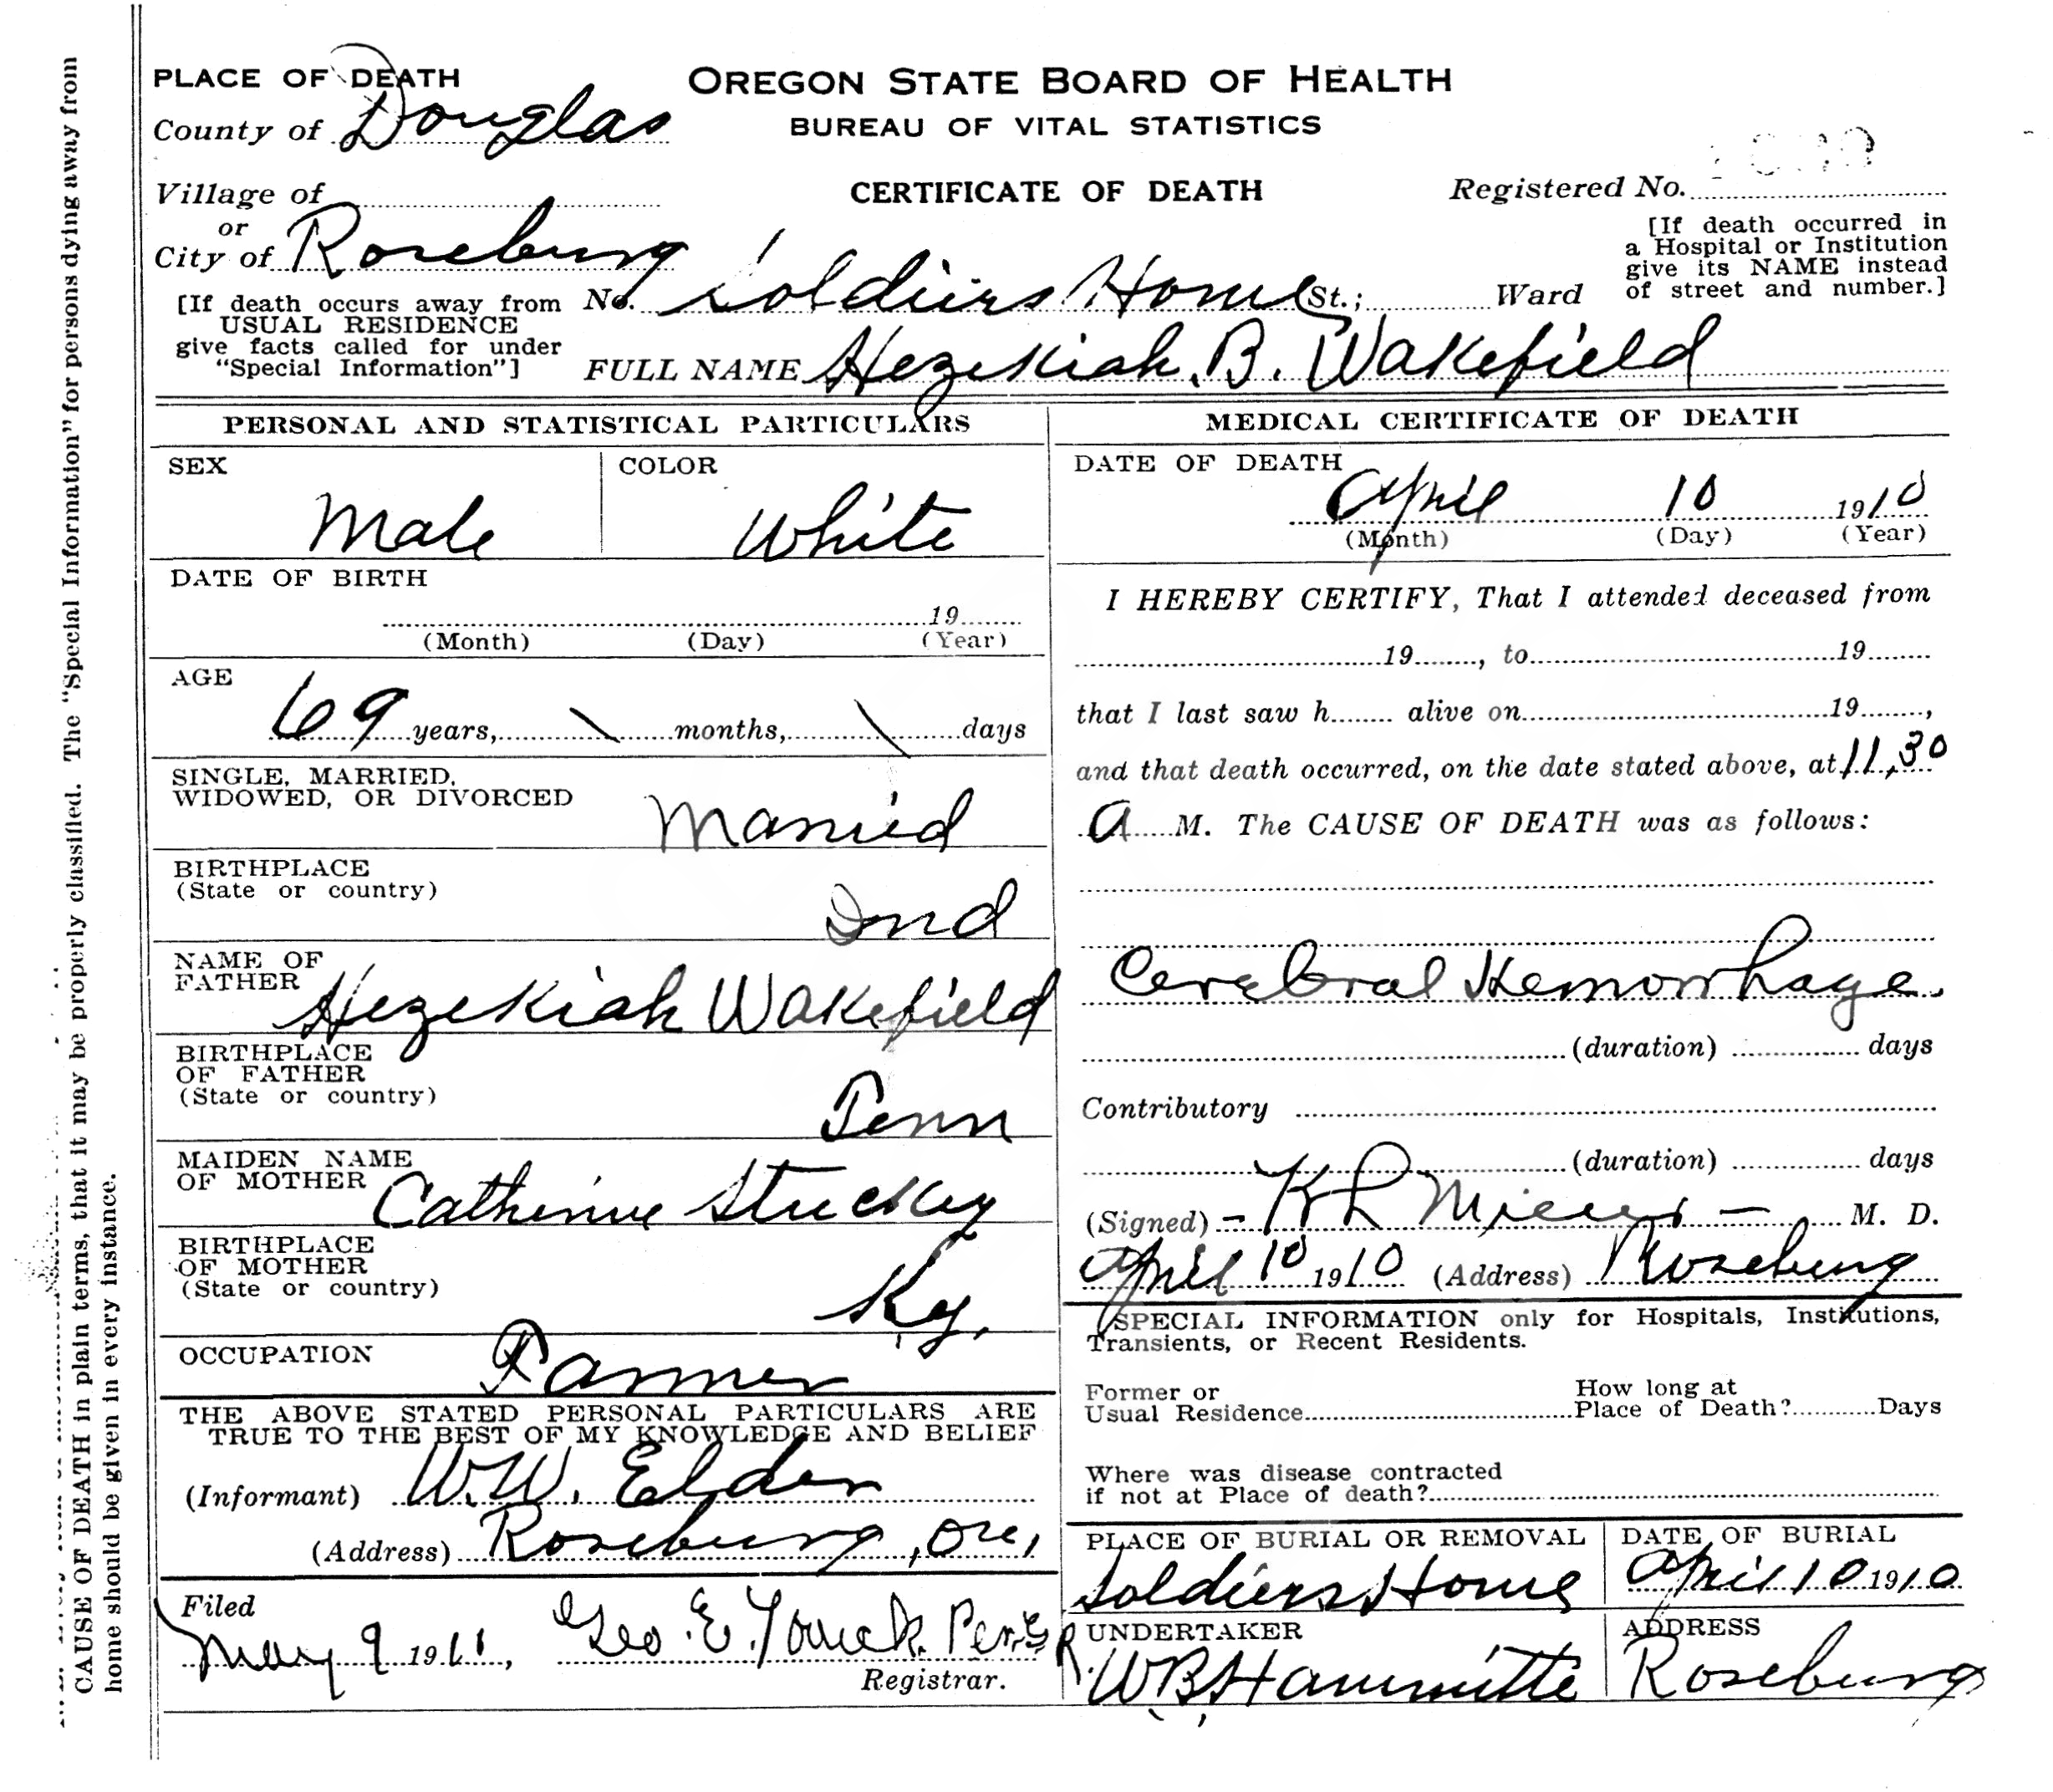 PLACE OF DEATH
OREGON STATE BOARD OF HEALTH
County of Douglas
BUREAU OF VITAL STATISTICS
Village of
CERTIFICATE OF DEATH
Registered No.
or
City of Roseburg
[If death occurred in
a Hospital or Institution
give its NAME instead
of street and number.]
No. Soldiers Home St.; Ward
[If death occurs away from
USUAL RESIDENCE
give facts called for under
"Special Information"]
FULL NAME Hezekiah. B. Wakefield
PERSONAL AND STATISTICAL PARTICULARS
SEX
Male
COLOR
White
DATE OF BIRTH
19
(Month) (Day) (Year)
AGE
69 years, \ months, \ days
SINGLE, MARRIED,
WIDOWED, OR DIVORCED
Married
BIRTHPLACE
(State or country)
Ind
NAME OF
FATHER
Hezekiah Wakefield
BIRTHPLACE
OF FATHER
(State or country)
Penn
MAIDEN NAME
OF MOTHER
Catherine Stuckey
BIRTHPLACE
OF MOTHER
(State or country)
Ky.
OCCUPATION
Farmer
THE ABOVE STATED PERSONAL PARTICULARS ARE
TRUE TO THE BEST OF MY KNOWLEDGE AND BELIEF
(Informant) W.W. Elder
(Address) Roseburg, Ore,
Filed
May 9 1911, Geo. E.
Registrar.
MEDICAL CERTIFICATE OF DEATH
DATE OF DEATH
April 10 1910
(Month) (Day) (Year)
I HEREBY CERTIFY, That I attended deceased from
19, to 19
that I last saw h alive on 19,
and that death occurred, on the date stated above, at 11,30
A M. The CAUSE OF DEATH was as follows:
Cerebral Hemorrhage.
(duration) days
Contributory
(duration) days
(Signed) - K L - M. D.
April 10 1910 (Address) Roseburg
SPECIAL INFORMATION only for Hospitals, Institutions,
Transients, or Recent Residents.
Former or
Usual Residence
How long at
Place of Death? Days
Where was disease contracted
if not at Place of death?
PLACE OF BURIAL OR REMOVAL
Soldiers Home
DATE OF BURIAL
April 10 1910
UNDERTAKER
W.B. Hammitte
ADDRESS
Roseburg
CAUSE OF DEATH in plain terms, that it may be properly classified. The "Special Information" for persons dying away from
home should be given in every instance.